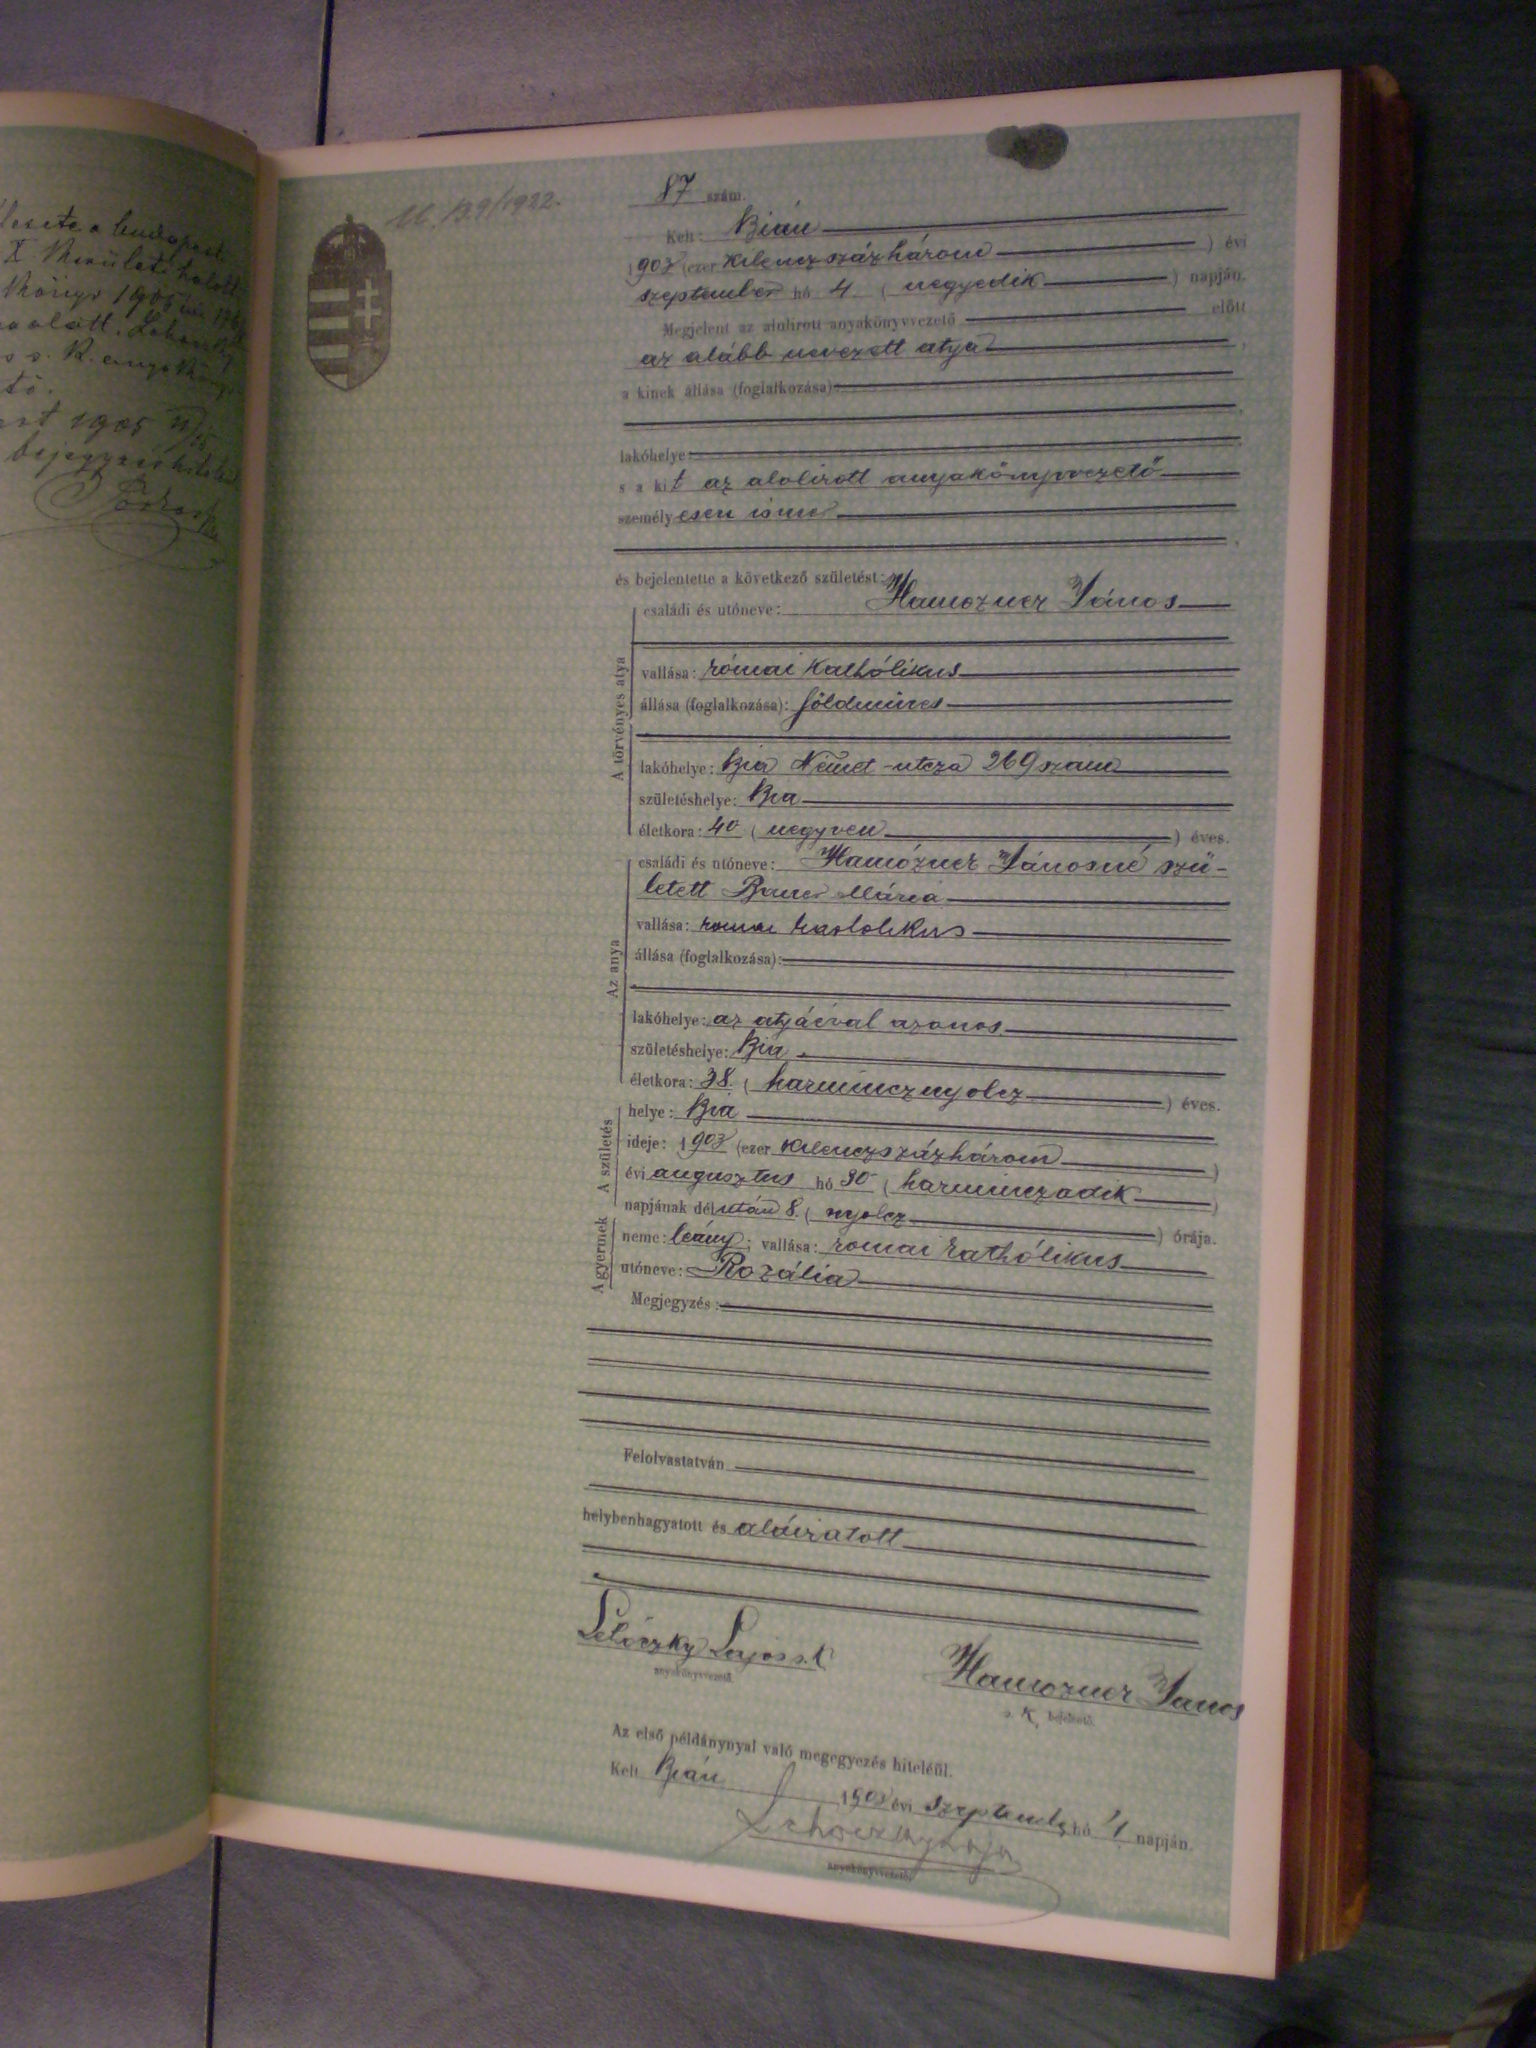 X. kerületi halott
1905
87 szám.
Kelt: Bián
1903 (ezer kilenczszázhárom) évi
szeptember hó 4 (negyedik) napján.
Megjelent az alulirott anyakönyvvezető előtt
az alább nevezett atya
a kinek állása (foglalkozása):
lakóhelye:
s a kit az alolirott anyakönyvvezető
személyesen ismer
és bejelentette a következő születést:
A törvényes atya
családi és utóneve: Hamozner János
vallása: római kathólikus
állása (foglalkozása): földmives
lakóhelye: Bia Német-utcza 269 szám
születéshelye: Bia
életkora: 40 (negyven) éves.
Az anya
családi és utóneve: Hamózner Jánosné szü-
letett Bauer Mária
vallása: római katholikus
állása (foglalkozása):
lakóhelye: az atyáéval azonos
születéshelye: Bia
életkora: 38. (harmincznyolcz) éves.
A születés
helye: Bia
ideje: 1903 (ezer kilenczszázhárom)
évi augusztus hó 30 (harminczadik)
napjának délután 8. (nyolcz) órája.
A gyermek
neme: leány; vallása: római kathólikus
utóneve: Rozália
Megjegyzés:
Felolvastatván
helybenhagyatott és aláiratott
Lajos s. k.
anyakönyvvezető.
Hamozner János
s. k. bejelentő.
Az első példánynyal való megegyezés hiteléül.
Kelt Bián 1903 évi szeptember hó 4 napján.
anyakönyvvezető.